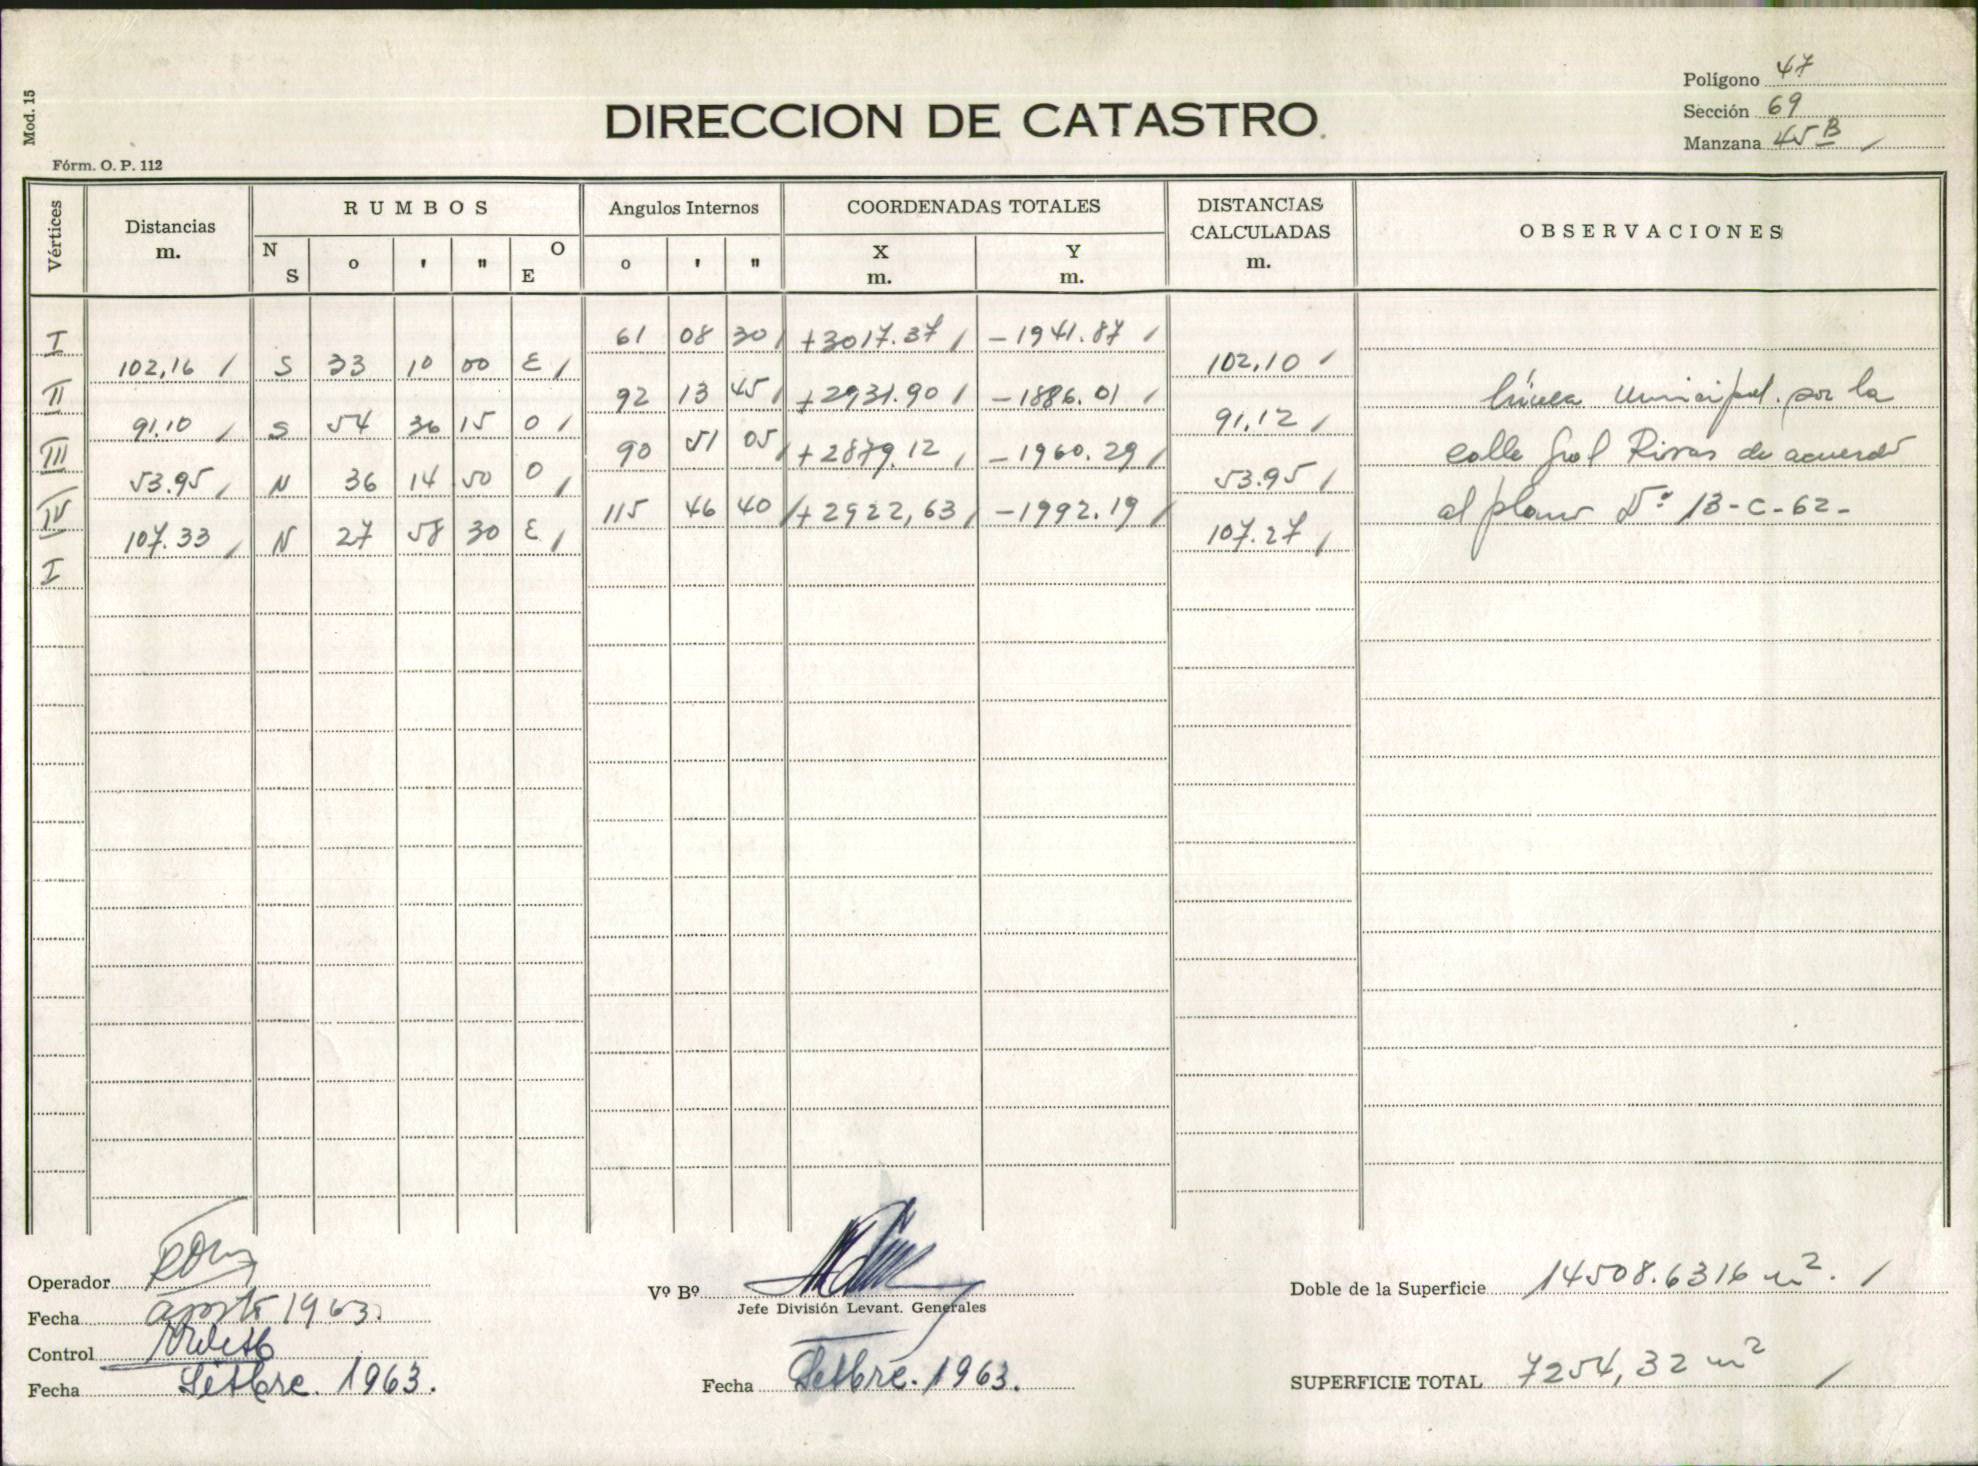 Mod. 15
Fórm. O. P. 112
DIRECCION DE CATASTRO
Polígono 47
Sección 69
Manzana 45 B
Vértices
Distancias m.
RUMBOS
N S o ' " O E
Angulos Internos
o ' "
COORDENADAS TOTALES
X m. Y m.
DISTANCIAS CALCULADAS m.
OBSERVACIONES
I 61 08 30 +3017.37 -1941.87
102,16 S 33 10 00 E 102,10
II 92 13 45 +2931.90 -1886.01 línea Municipal por la
91.10 S 54 36 15 O 91,12
III 90 51 05 +2879.12 -1960.29 calle Gral Rivas de acuerdo
53.95 N 36 14 50 O 53.95
IV 115 46 40 +2922,63 -1992.19 al plano Nº 13-C-62-
107.33 N 27 58 30 E 107.27
I
Operador
Fecha agosto 1963.
Control
Fecha Setbre. 1963.
Vº Bº
Jefe División Levant. Generales
Fecha Setbre. 1963.
Doble de la Superficie 14508.6316 m².
SUPERFICIE TOTAL 7254,32 m²